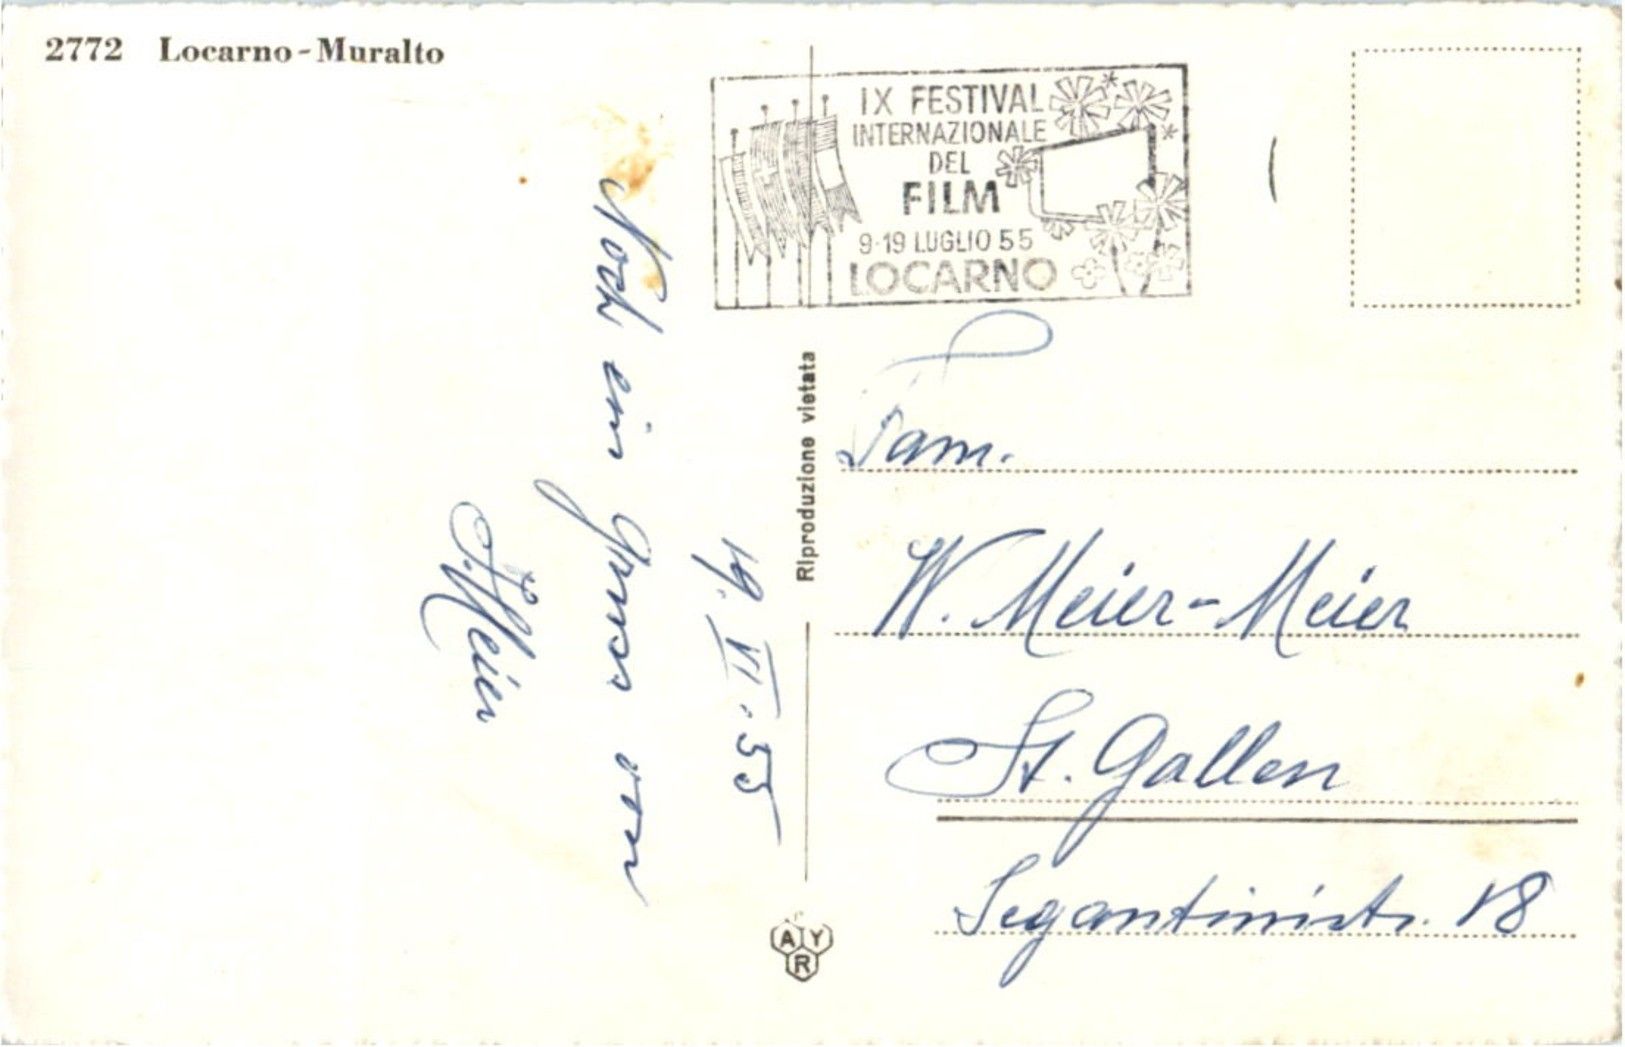 2772 Locarno-Muralto
IX FESTIVAL
INTERNAZIONALE
DEL
FILM
9-19 LUGLIO 55
LOCARNO
Riproduzione vietata
19. VI. 55
Noch ein Gruss von
Meier
Fam.
W. Meier-Meier
St. Gallen
Segantinistr. 18
A Y
R